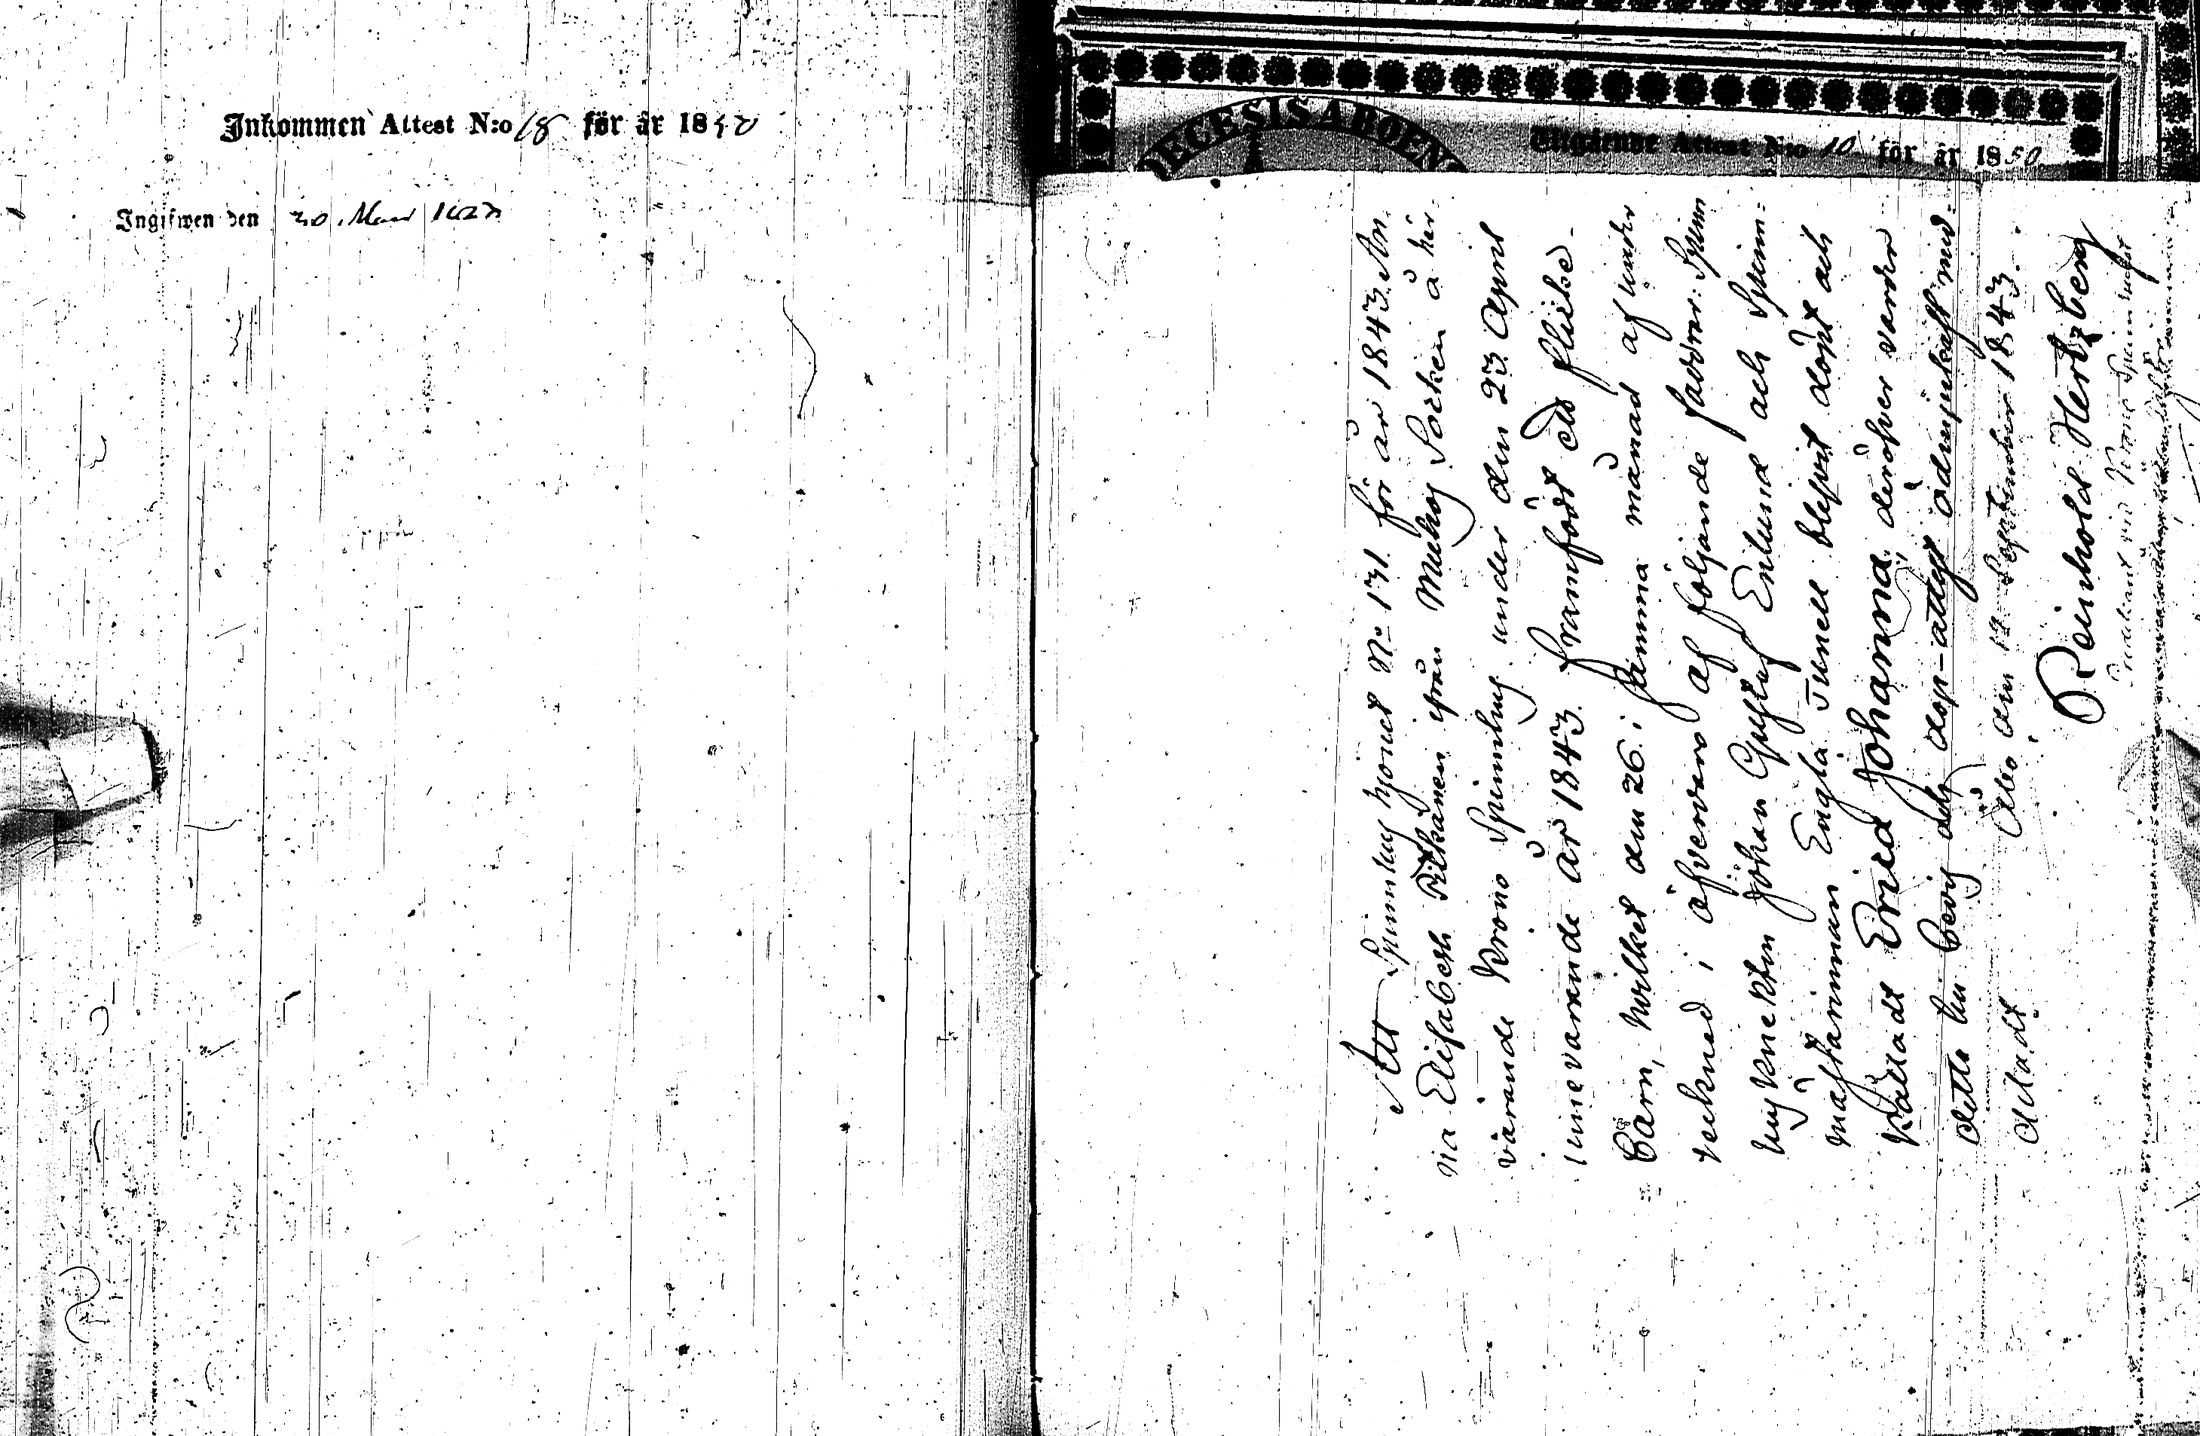 Inkommen Attest N:o 18 för år 1850
Ingifwen den 30 Maii
DIECESIS ABOENS
Utgående Attest N:o 10 för år 1850
Att Spinnhus hjonet No 131 för år 1843 An-
na Elisabeth Pitkänen ifrån Muhos Socken å här-
varande Krono Spinnhus under den 23 April
innevarande år 1843 framfödt ett flicke-
barn, hvilket den 26 i samma månad af under-
tecknad i öfvervaro af följande faddrar: Spinn
huj knekten Johan Gustaf Enlund och Spinn-
mästarinnan Engla Tunell blifvit döpt och
kalladt Erica Johanna, deröfver varder
detta till bevis dop-attest ödmjukast med-
deladt. Åbo den 12 September 1843.
Reinhold Hertzberg
Predikant vid Krono Spinnhuset